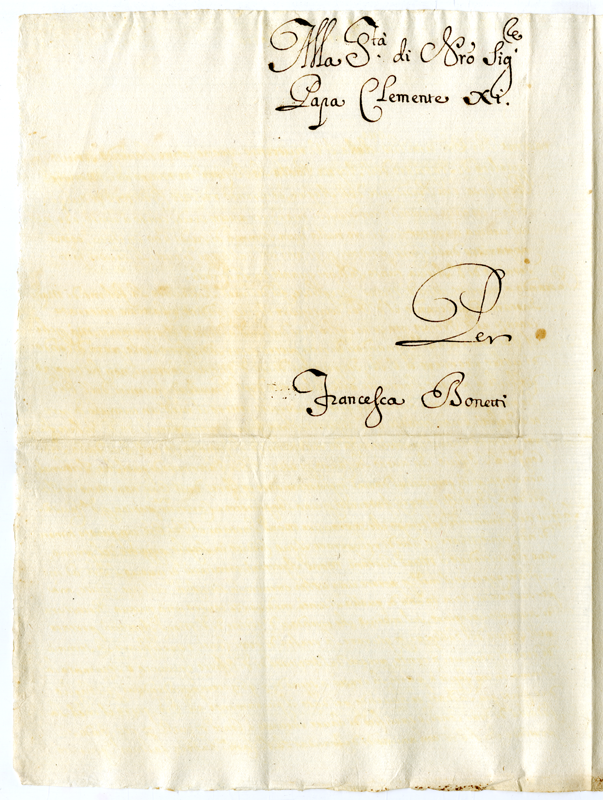 Alla S.tà di Nro Sig.re
Papa Clemente XI.
Per
Francesca Bonetti